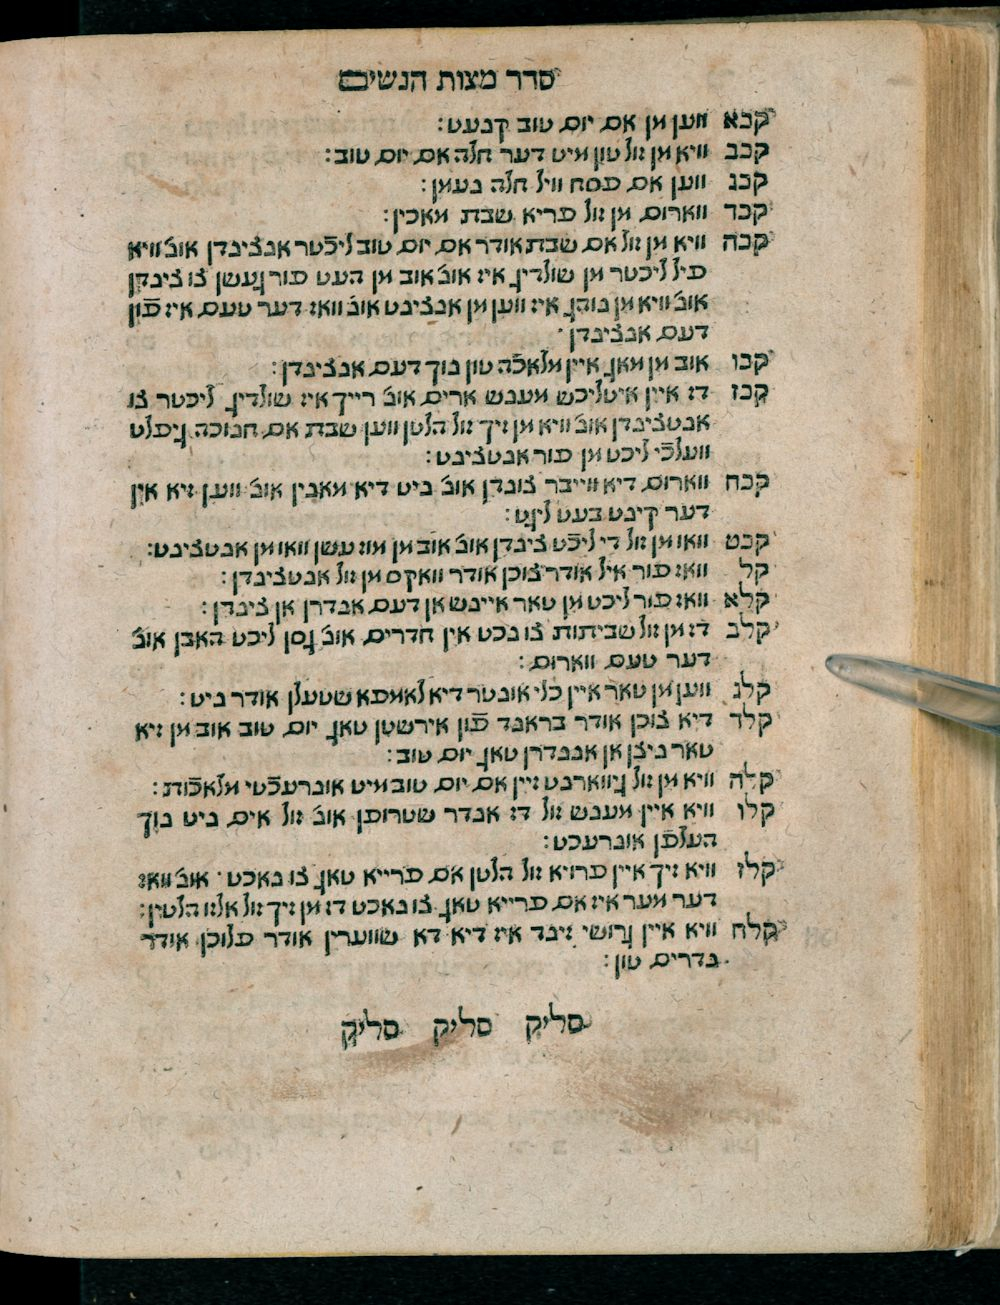 סדר מצות הנשים
קכא ווען מן אם יום טוב קנעט:
קכב וויא מן זול טון מיט דער חלה אם יום טוב:
קכג ווען אם פסח וויל חלה נעמן:
קכד ווארום מן זול פריא שבת מאכין:
קכה וויא מן זול אם שבת אודר אם יום טוב ליכֿטר אנצינדן אונ' וויא
פיל ליכטר מן שולדיג איז אונ' אוב מן העט פור געשן צו צינדן
אונ' וויא מן נוהג איז ווען מן אנצינט אונ' וואז דער טעם איז פֿון
דעם אנצינדן
קכו אוב מן מאג איין מלאכה טון נוך דעם אנצינדן:
קכז דז איין איטליכש מענש ארים אונ' רייך איז שולדיג ליכטר צו
אנטצינדן אונ' וויא מן זיך זול הלטן ווען שבת אם חנוכה גיפלט
וועלכֿי ליכט מן פור אנטצינט:
קכח ווארום דיא ווייבר צונדן אונ' ניט דיא מאנין אונ' ווען זיא אין
דער קינט בעט ליגט:
קכט וואו מן זול די ליכֿט צינדן אונ' אוב מן מוז עשן וואו מן אנטצינט:
קל וואז פור איל אודר צוכן אודר וואקס מן זול אנטצינדן:
קלא וואז פור ליכט מן טאר איינש אן דעם אנדרן אן צינדן:
קלב דז מן זול שביתות צו נכט אין חדרים אונ' גסן ליכט האבן אונ'
דער טעם ווארום:
קלג ווען מן טאר איין כלי אונטר דיא לאמפא שטעלן אודר ניט:
קלד דיא צוכן אודר בראנד פֿון אירשטן טאג יום טוב אוב מן זיא
טאר ניצן אן אננדרן טאג יום טוב:
קלה וויא מן זול גיווארנט זיין אם יום טוב מיט אונרעכֿטי מלאכֿות:
קלו וויא איין מענש זול דז אנדר שטרופן אונ' זול אים ניט נוך
העלפֿן אונרעכט:
קלז וויא זיך איין פרויא זול הלטן אם פרייא טאג צו נאכט אונ' וואז
דער מער איז אם פרייא טאג צו נאכט דז מן זיך זול אלזו הלטין:
קלח וויא איין גרושי זינד איז דיא דא שווערין אודר פלוכן אודר
נדרים טון:
סליק סליק סליק